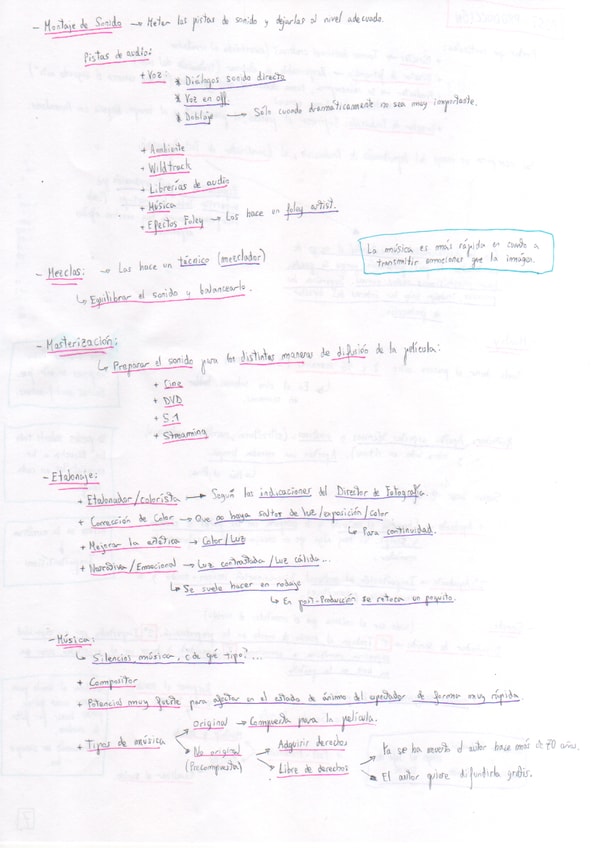 - Montaje de Sonido → Meter las pistas de sonido y dejarlas al nivel adecuado.
Pistas de audio:
+ Voz: * Diálogos sonido directo
* Voz en off
* Doblaje → Sólo cuando dramáticamente no sea muy importante.
+ Ambiente
+ Wildtrack
+ Librerías de audio
+ Música
+ Efectos Foley → Los hace un foley artist.
La música es más rápida en cuanto a
transmitir emociones que la imagen.
- Mezclas: → Las hace un técnico (mezclador)
↳ Equilibrar el sonido y balancearlo.
- Masterización:
↳ Preparar el sonido para las distintas maneras de difusión de la película:
+ Cine
+ DVD
+ 5.1
+ Streaming
- Etalonaje:
+ Etalonador/colorista → Según las indicaciones del Director de Fotografía.
+ Corrección de Color → Que no haya saltos de luz/exposición/color.
↳ Para continuidad.
+ Mejorar la estética → Color/Luz
+ Narrativa/Emocional → Luz contrastada/Luz cálida...
↳ Se suele hacer en rodaje
↳ En post-Producción se retoca un poquito.
- Música:
↳ Silencios, música, ¿de qué tipo?...
+ Compositor
+ Potencial muy fuerte para afectar en el estado de ánimo del espectador de forma muy rápida.
+ Tipos de música
Original → Compuesta para la película.
No original
(Precompuesta)
Adquirir derechos
Libre de derechos
Ya se ha muerto el autor hace más de 70 años.
El autor quiere difundirla gratis.